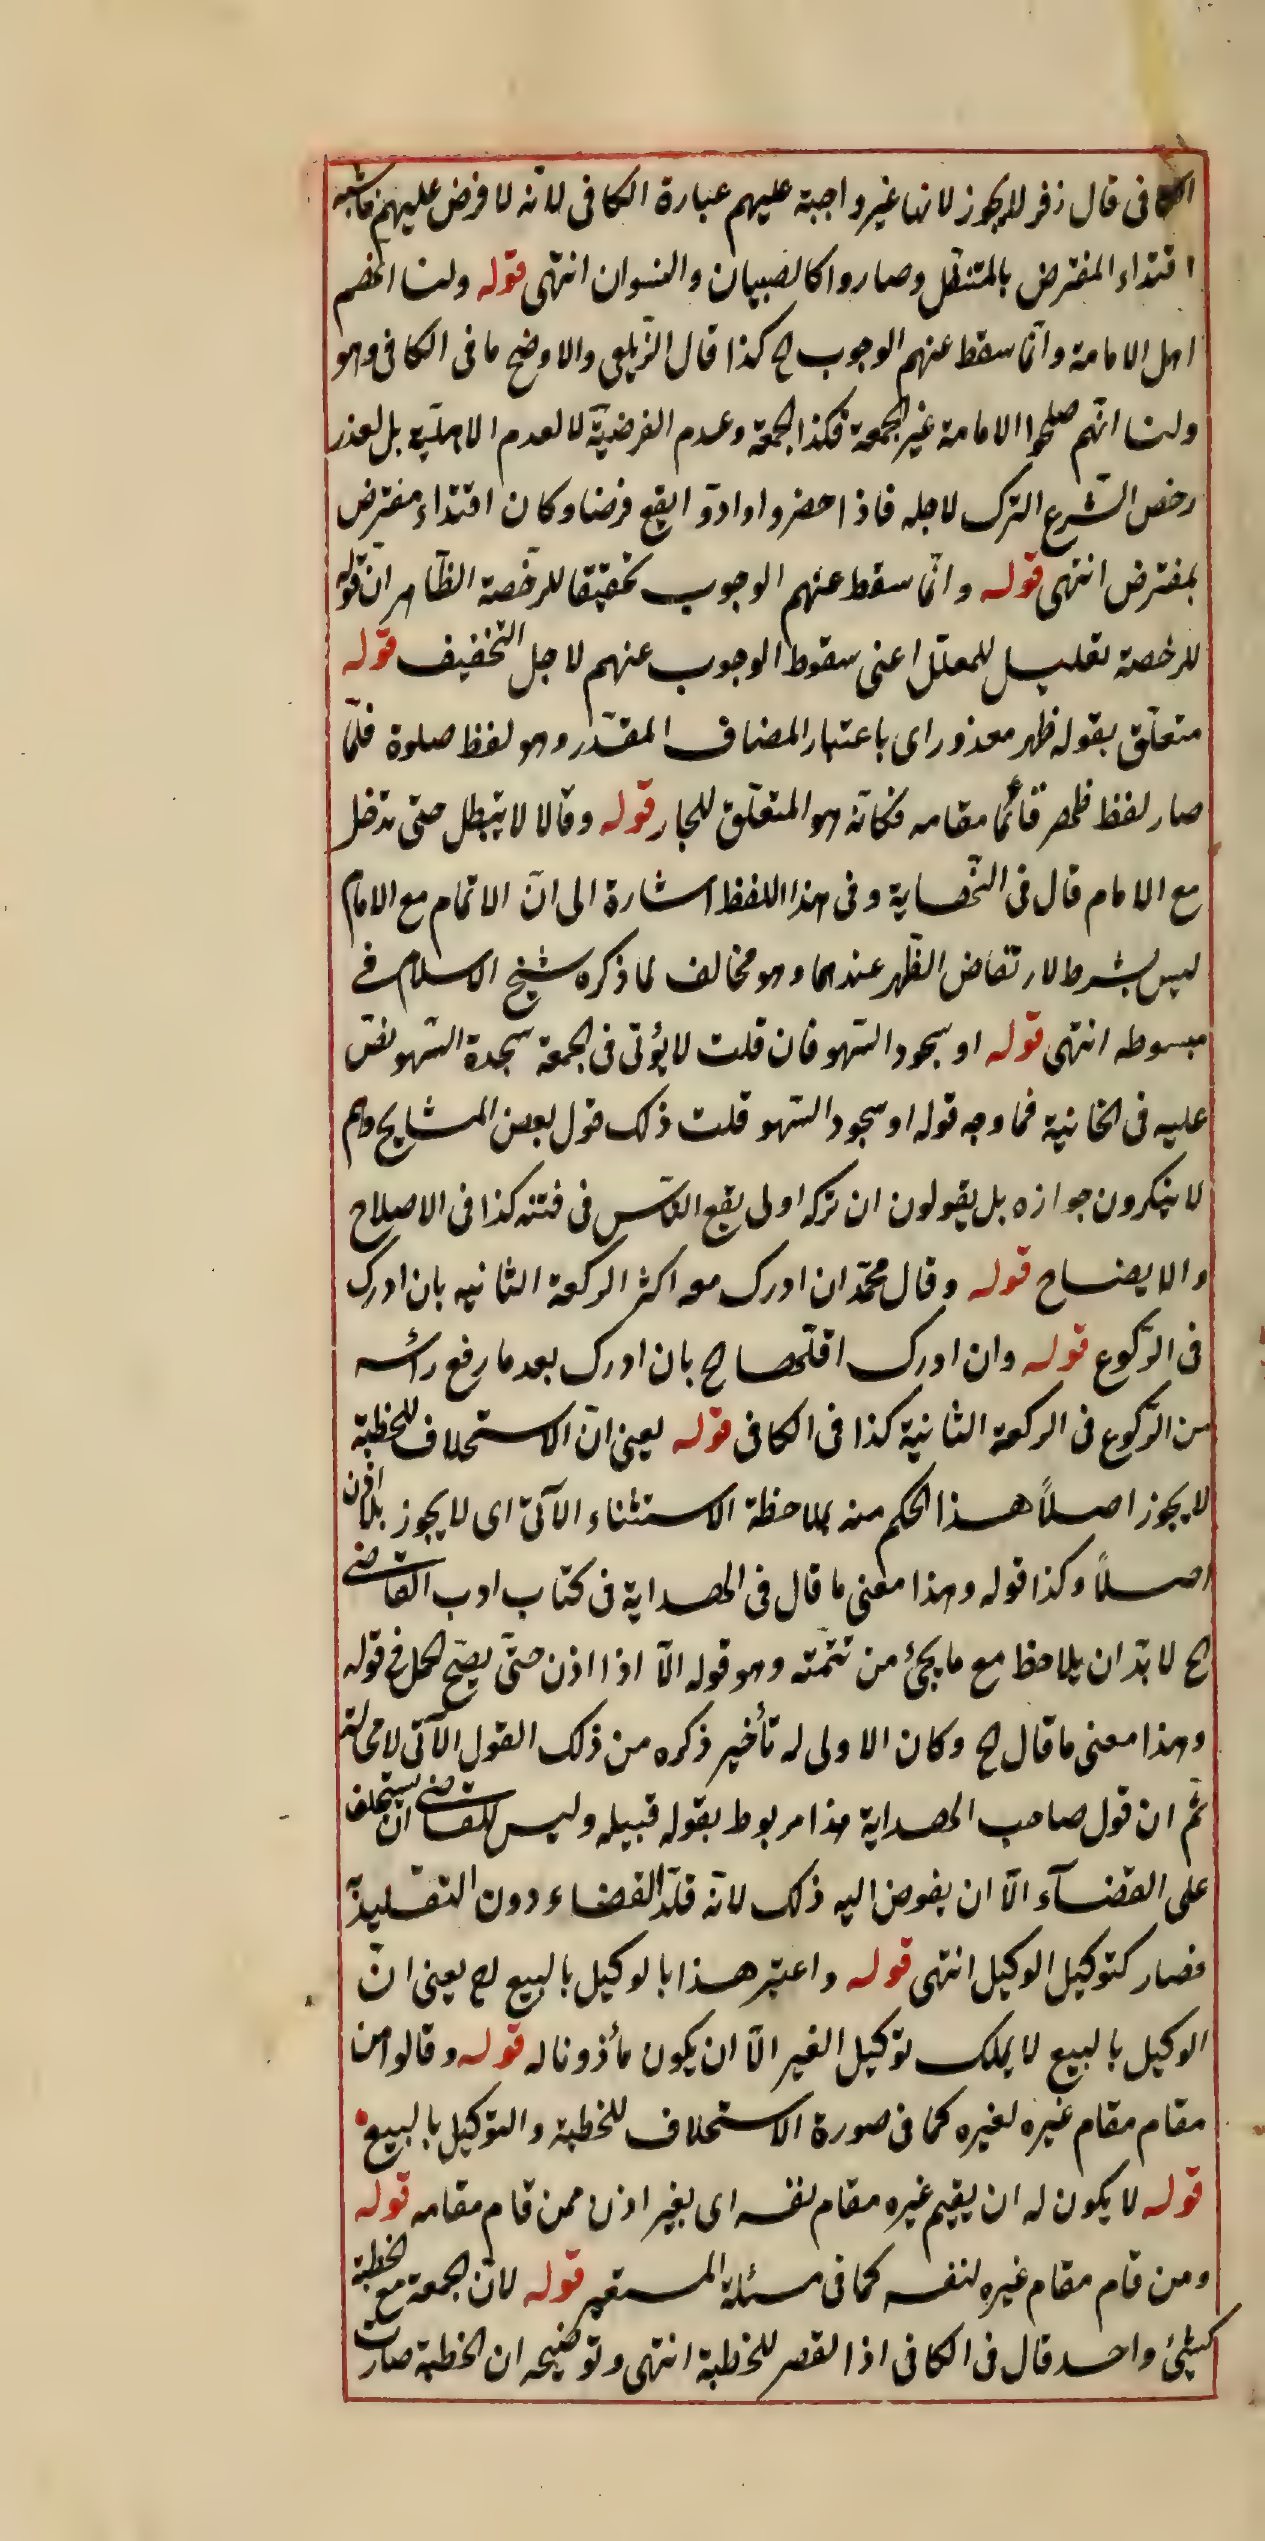 الكافى قال زفر لا يجوز لانها غير واجبة عليهم عبارة الكافى لانه لا فرض عليهم فاشبه
اقتداء المفترض بالمتنفّل وصاروا كالصبيان والنسوان انتهى قوله ولنا انهم
اهل الامامة وانّما سقط عنهم الوجوب الخ كذا قال الزّيلعى والاوضح ما فى الكافى وهو
ولنا انّهم صلحوا الامامة غير الجمعة فكذا الجمعة وعدم الفرضيّة لا لعدم الاهليّة بل لعذر
رخص الشّرع الترك لاجله فاذا حضروا وادّوا يقع فرضا وكان اقتداء مفترض
بمفترض انتهى قوله وانّما سقط عنهم الوجوب تحقيقا للرّخصة الظّاهر انّ قوله
للرخصة تعليل للمعلّل اعنى سقوط الوجوب عنهم لاجل التّخفيف قوله
متعلّق بقوله ظهر معذور اى باعتبار المضاف المقدّر وهو لفظ صلوة فلمّا
صار لفظ ظهر قائمًا مقامه فكانّه هو المتعلّق للجار قوله وقالا لا يبطل حتى يدخل
مع الامام قال فى النّهاية وفى هذا اللفظ اشارة الى انّ الاتمام مع الامام
ليس بشرط لارتفاض الظّهر عندهما وهو مخالف لما ذكره شيخ الاسلام فى
مبسوطه انتهى قوله او سجود السّهو فان قلت لا يؤتى فى الجمعة سجدة السّهو نصّ
عليه فى الخانية فما وجه قوله او سجود السّهو قلت ذلك قول بعض المشايخ وهم
لا ينكرون جوازه بل يقولون ان تركه اولى يقع النّاس فى فتنه كذا فى الاصلاح
والايضاح قوله وقال محمّد ان ادرك معه اكثر الركعة الثانيه بان ادرك
فى الرّكوع قوله وان ادرك اقلّها الخ بان ادرك بعد ما رفع رأسه
من الرّكوع فى الركعة الثانية كذا فى الكافى قوله يعنى انّ الاستخلاف للخطبة
لا يجوز اصلاً هذا الحكم منه بملاحظة الاستثناء الآتى اى لا يجوز بلا اذن
اصلاً وكذا قوله وهذا معنى ما قال فى الهداية فى كتاب ادب القاضى
الخ لا بدّ ان يلاحظ مع ما يجئ من تتمّته وهو قوله الّا اذا اذن حتّى يصحّ الحمل فى قوله
وهذا معنى ما قال الخ وكان الاولى له تأخير ذكره من ذلك القول الآتى لا محالة
ثمّ ان قول صاحب الهداية هذا مربوط بقوله قبيله وليس للقاضى ان يستخلف
على القضاء الّا ان يفوض اليه ذلك لانّه قلّد القضاء دون التقليد به
فصار كتوكيل الوكيل انتهى قوله واعتبر هذا بالوكيل بالبيع الخ يعنى انّ
الوكيل بالبيع لا يملك توكيل الغير الّا ان يكون مأذونا له قوله وقالوا من
مقام مقام غيره لغيره كما فى صورة الاستخلاف للخطبة والتوكيل بالبيع
قوله لا يكون له ان يقيم غيره مقام نفسه اى بغير اذن ممن قام مقامه قوله
ومن قام مقام غيره لنفسه كما فى مسئلة المستعير قوله لانّ الجمعة مع الخطبة
كشئ واحد قال فى الكافى اذا لقصر للخطبة انتهى وتوضيحه ان الخطبة صارت